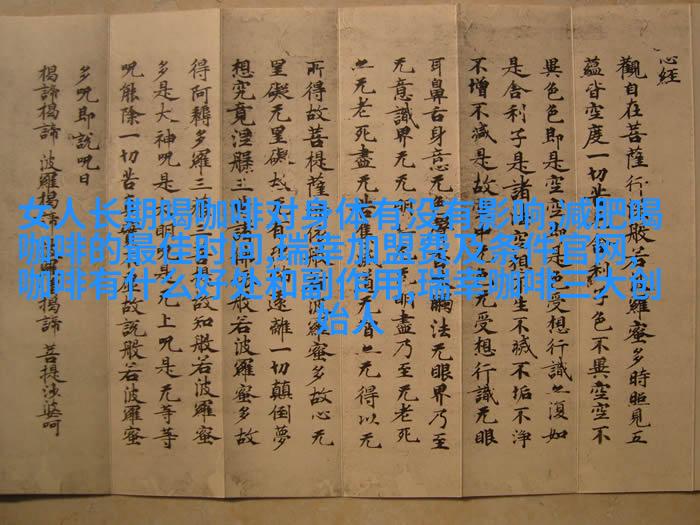 心经
觀自在菩薩行般若羅蜜多時照見五
蘊皆空度一切苦利子色不異空空不
異色色即是空空即是色受想行識亦復如
是舍利子是諸空相生不滅不垢不淨
不增不減是故中无色无受想行識无眼
耳鼻舌身意无色聲香觸法无眼界乃至
无意識界无无明明盡乃至无老死
亦无老死盡无苦集道无亦无得以无
所得故菩提薩依般若波羅蜜多故心无
罣礙无罣礙故无有遠離一切顛倒夢
想究竟涅槃三諸佛般若波羅蜜多故
得阿耨多羅三三提故知般若波羅蜜
多是大神咒是明咒是无上咒是无等等
咒能除一切苦虛故說般若波羅蜜
多咒即說咒曰
揭諦揭諦 波羅揭諦 羅揭諦 菩提婆呵
女人长期喝咖啡对身体有没有影响,减肥喝
咖啡的最佳时间,瑞幸加盟费及条件官网,
咖啡有什么好处和副作用,瑞幸咖啡三大创
始人